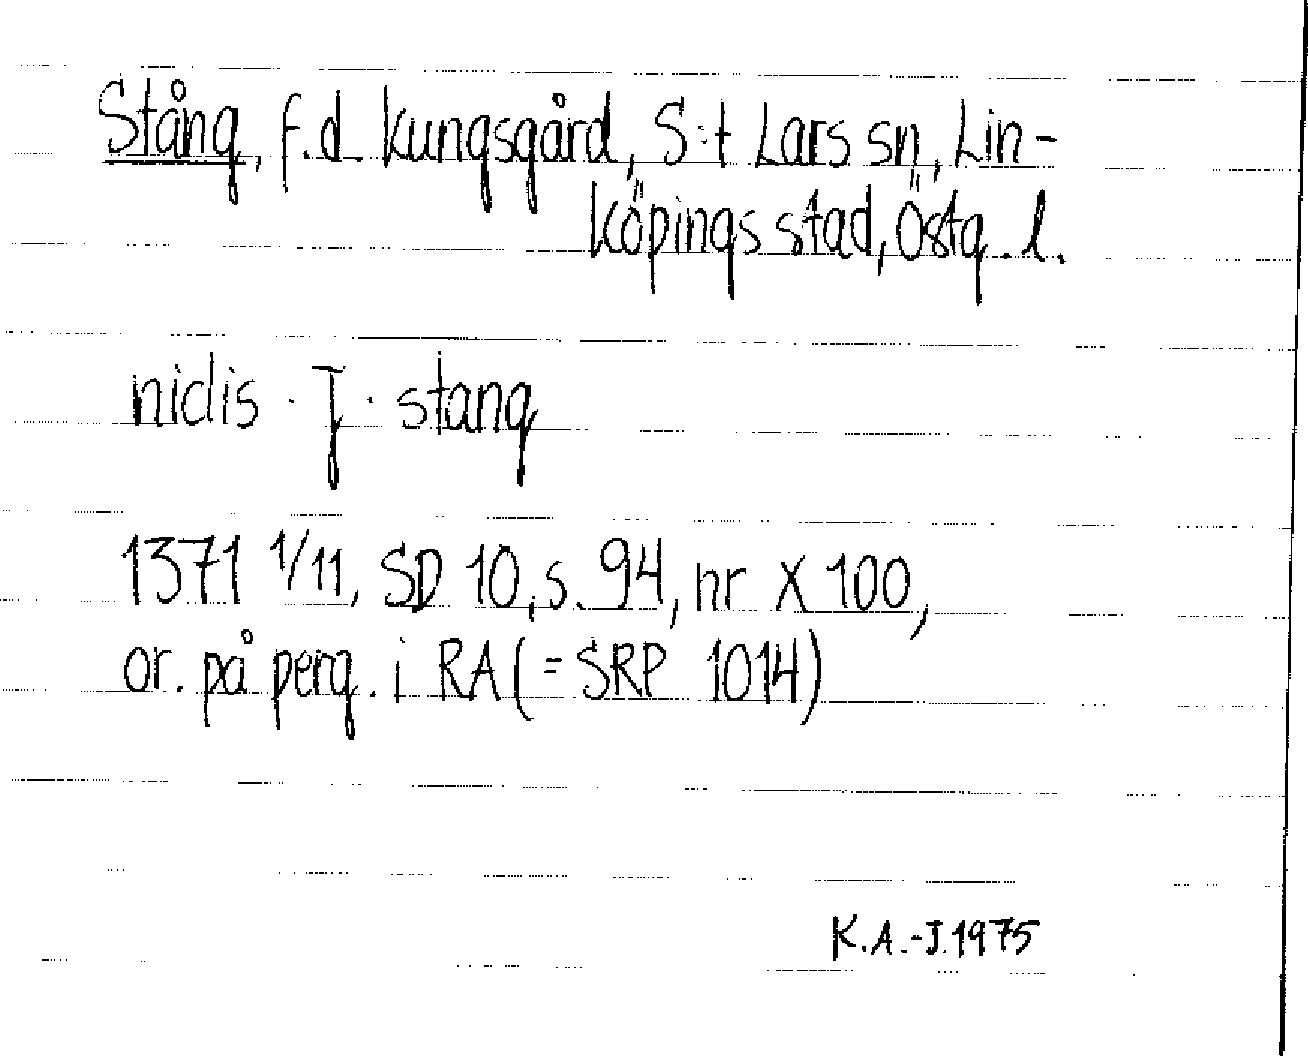 Stång, f.d. kungsgård, S:t Lars sn, Lin-
köpings stad, Östg. l.
nidis · J · stang
1371 1/11, SD 10, s. 94, nr X 100,
or. på perg. i RA (= SRP 1014)
K.A.-J. 1975